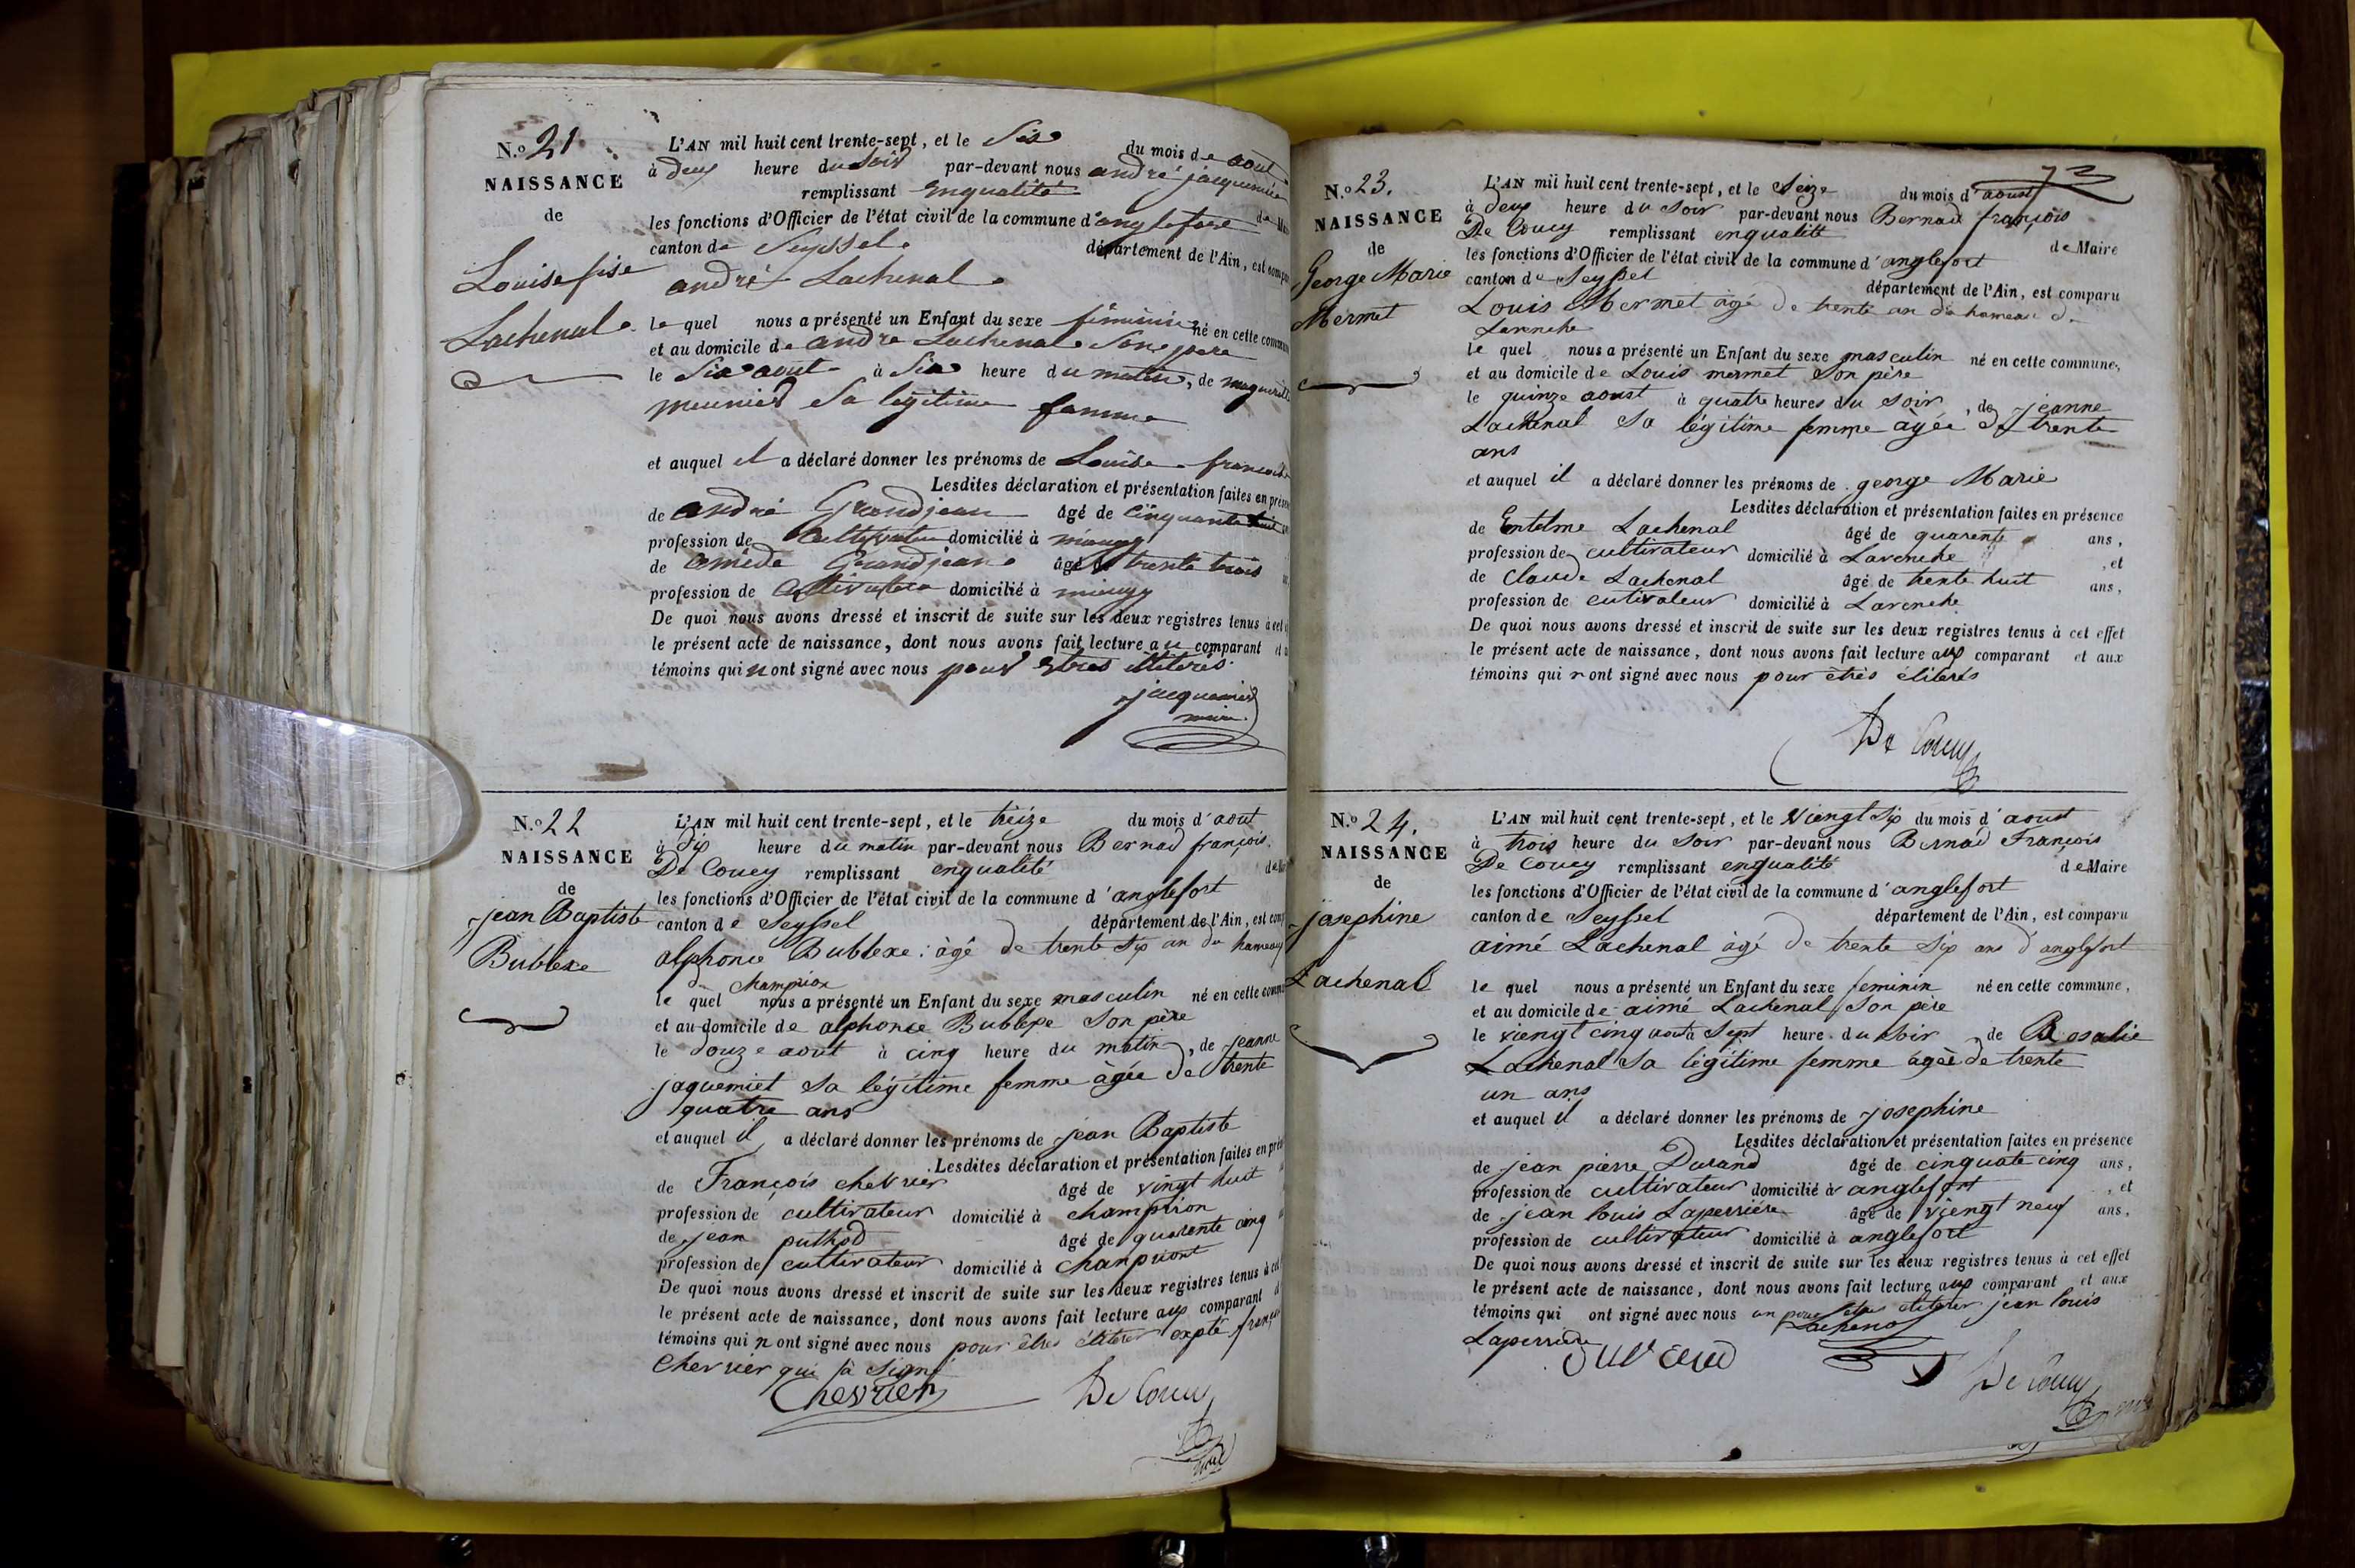 N.o 21
NAISSANCE
de
Louise fise
Lachenal
L'AN mil huit cent trente-sept, et le Six du mois de aout
à deux heure du soir par-devant nous andré jacquemier
remplissant enqualité de
les fonctions d'Officier de l'état civil de la commune d'anglefort
canton de Seyssel département de l'Ain, est
andré Lachenal
le quel nous a présenté un Enfant du sexe féminin né en cette
et au domicile de andre Lachenal Son pere
le Six aout à Six heure du matin, de
meunier Sa légitime famme
et auquel il a déclaré donner les prénoms de Louise francoise
Lesdites déclaration et présentation faites en
de andré Grandjean âgé de cinquante huit
profession de cultivateur domicilié à
de amédé Grandjean âgé de trente trois
profession de cultivateur domicilié à
De quoi nous avons dressé et inscrit de suite sur les deux registres tenus à cet
le présent acte de naissance, dont nous avons fait lecture au comparant et
témoins qui n ont signé avec nous pour Etres illiterés
jacquemier
maire
N.o 22
NAISSANCE
de
jean Baptiste
Bublexe
L'AN mil huit cent trente-sept, et le treize du mois d'aout
à Six heure du matin par-devant nous Bernad françois
De Coucy remplissant enqualité de
les fonctions d'Officier de l'état civil de la commune d'anglefort
canton de Seyssel département de l'Ain, est
alphonse Bublexe âgé de trente Six an du hameau
de Champrion
le quel nous a présenté un Enfant du sexe masculin né en cette
et au domicile de alphonse Bublexe Son père
le douze aout à cinq heure du matin, de jeanne
jaquemiet Sa légitime femme âgée de trente
quatre ans
et auquel il a déclaré donner les prénoms de jean Baptiste
Lesdites déclaration et présentation faites en
de François chevrier âgé de vingt huit
profession de cultivateur domicilié à champrion
de jean puthod âgé de quarente cinq
profession de cultivateur domicilié à Champriont
De quoi nous avons dressé et inscrit de suite sur les deux registres tenus à cet
le présent acte de naissance, dont nous avons fait lecture aux comparant
témoins qui n ont signé avec nous pour êtres éliterer expté
Chevrier qui à signé
Chevrier De Coucy
N.o 23.
NAISSANCE
de
George Marie
Mermet
L'AN mil huit cent trente-sept, et le Seize du mois d'aoust
à deux heure du Soir par-devant nous Bernad françois
De Coucy remplissant enqualité de Maire
les fonctions d'Officier de l'état civil de la commune d'anglefort
canton de Seyssel département de l'Ain, est comparu
Louis Mermet âgé de trente an du hameau de
Lavenche
le quel nous a présenté un Enfant du sexe masculin né en cette commune,
et au domicile de Louis mermet Son père
le quinze aoust à quatre heures du soir, de jeanne
Lachenal Sa légitime femme âgée de trente
ans
et auquel il a déclaré donner les prénoms de george Marie
Lesdites déclaration et présentation faites en présence
de Entelme Lachenal âgé de quarente ans,
profession de cultivateur domicilié à Lavenche, et
de Claude Lachenal âgé de trente huit ans,
profession de cutivateur domicilié à Lavenche
De quoi nous avons dressé et inscrit de suite sur les deux registres tenus à cet effet
le présent acte de naissance, dont nous avons fait lecture aux comparant et aux
témoins qui n ont signé avec nous pour êtrés éliterés
De Coucy
N.o 24.
NAISSANCE
de
josephine
Lachenal
L'AN mil huit cent trente-sept, et le viengt Six du mois d'aoust
à trois heure du Soir par-devant nous Bernad François
De Coucy remplissant enqualité de Maire
les fonctions d'Officier de l'état civil de la commune d'anglefort
canton de Seyssel département de l'Ain, est comparu
aimé Lachenal âgé de trente Six ans d'anglefort
le quel nous a présenté un Enfant du sexe feminin né en cette commune,
et au domicile de aimé Lachenal Son père
le viengt cinq aout à Sept heure du Soir de Rosalie
Lachenal Sa légitime femme âgée de trente
un ans
et auquel il a déclaré donner les prénoms de josephine
Lesdites déclaration et présentation faites en présence
de jean pierre Durand âgé de cinquate cinq ans,
profession de cultivateur domicilié à anglefort, et
de jean louis Laperrière âgé de viengt neuf ans,
profession de cultivateur domicilié à anglefort
De quoi nous avons dressé et inscrit de suite sur les deux registres tenus à cet effet
le présent acte de naissance, dont nous avons fait lecture aux comparant et aux
témoins qui ont signé avec nous jean louis
Laperrière Lachenal
De Coucy